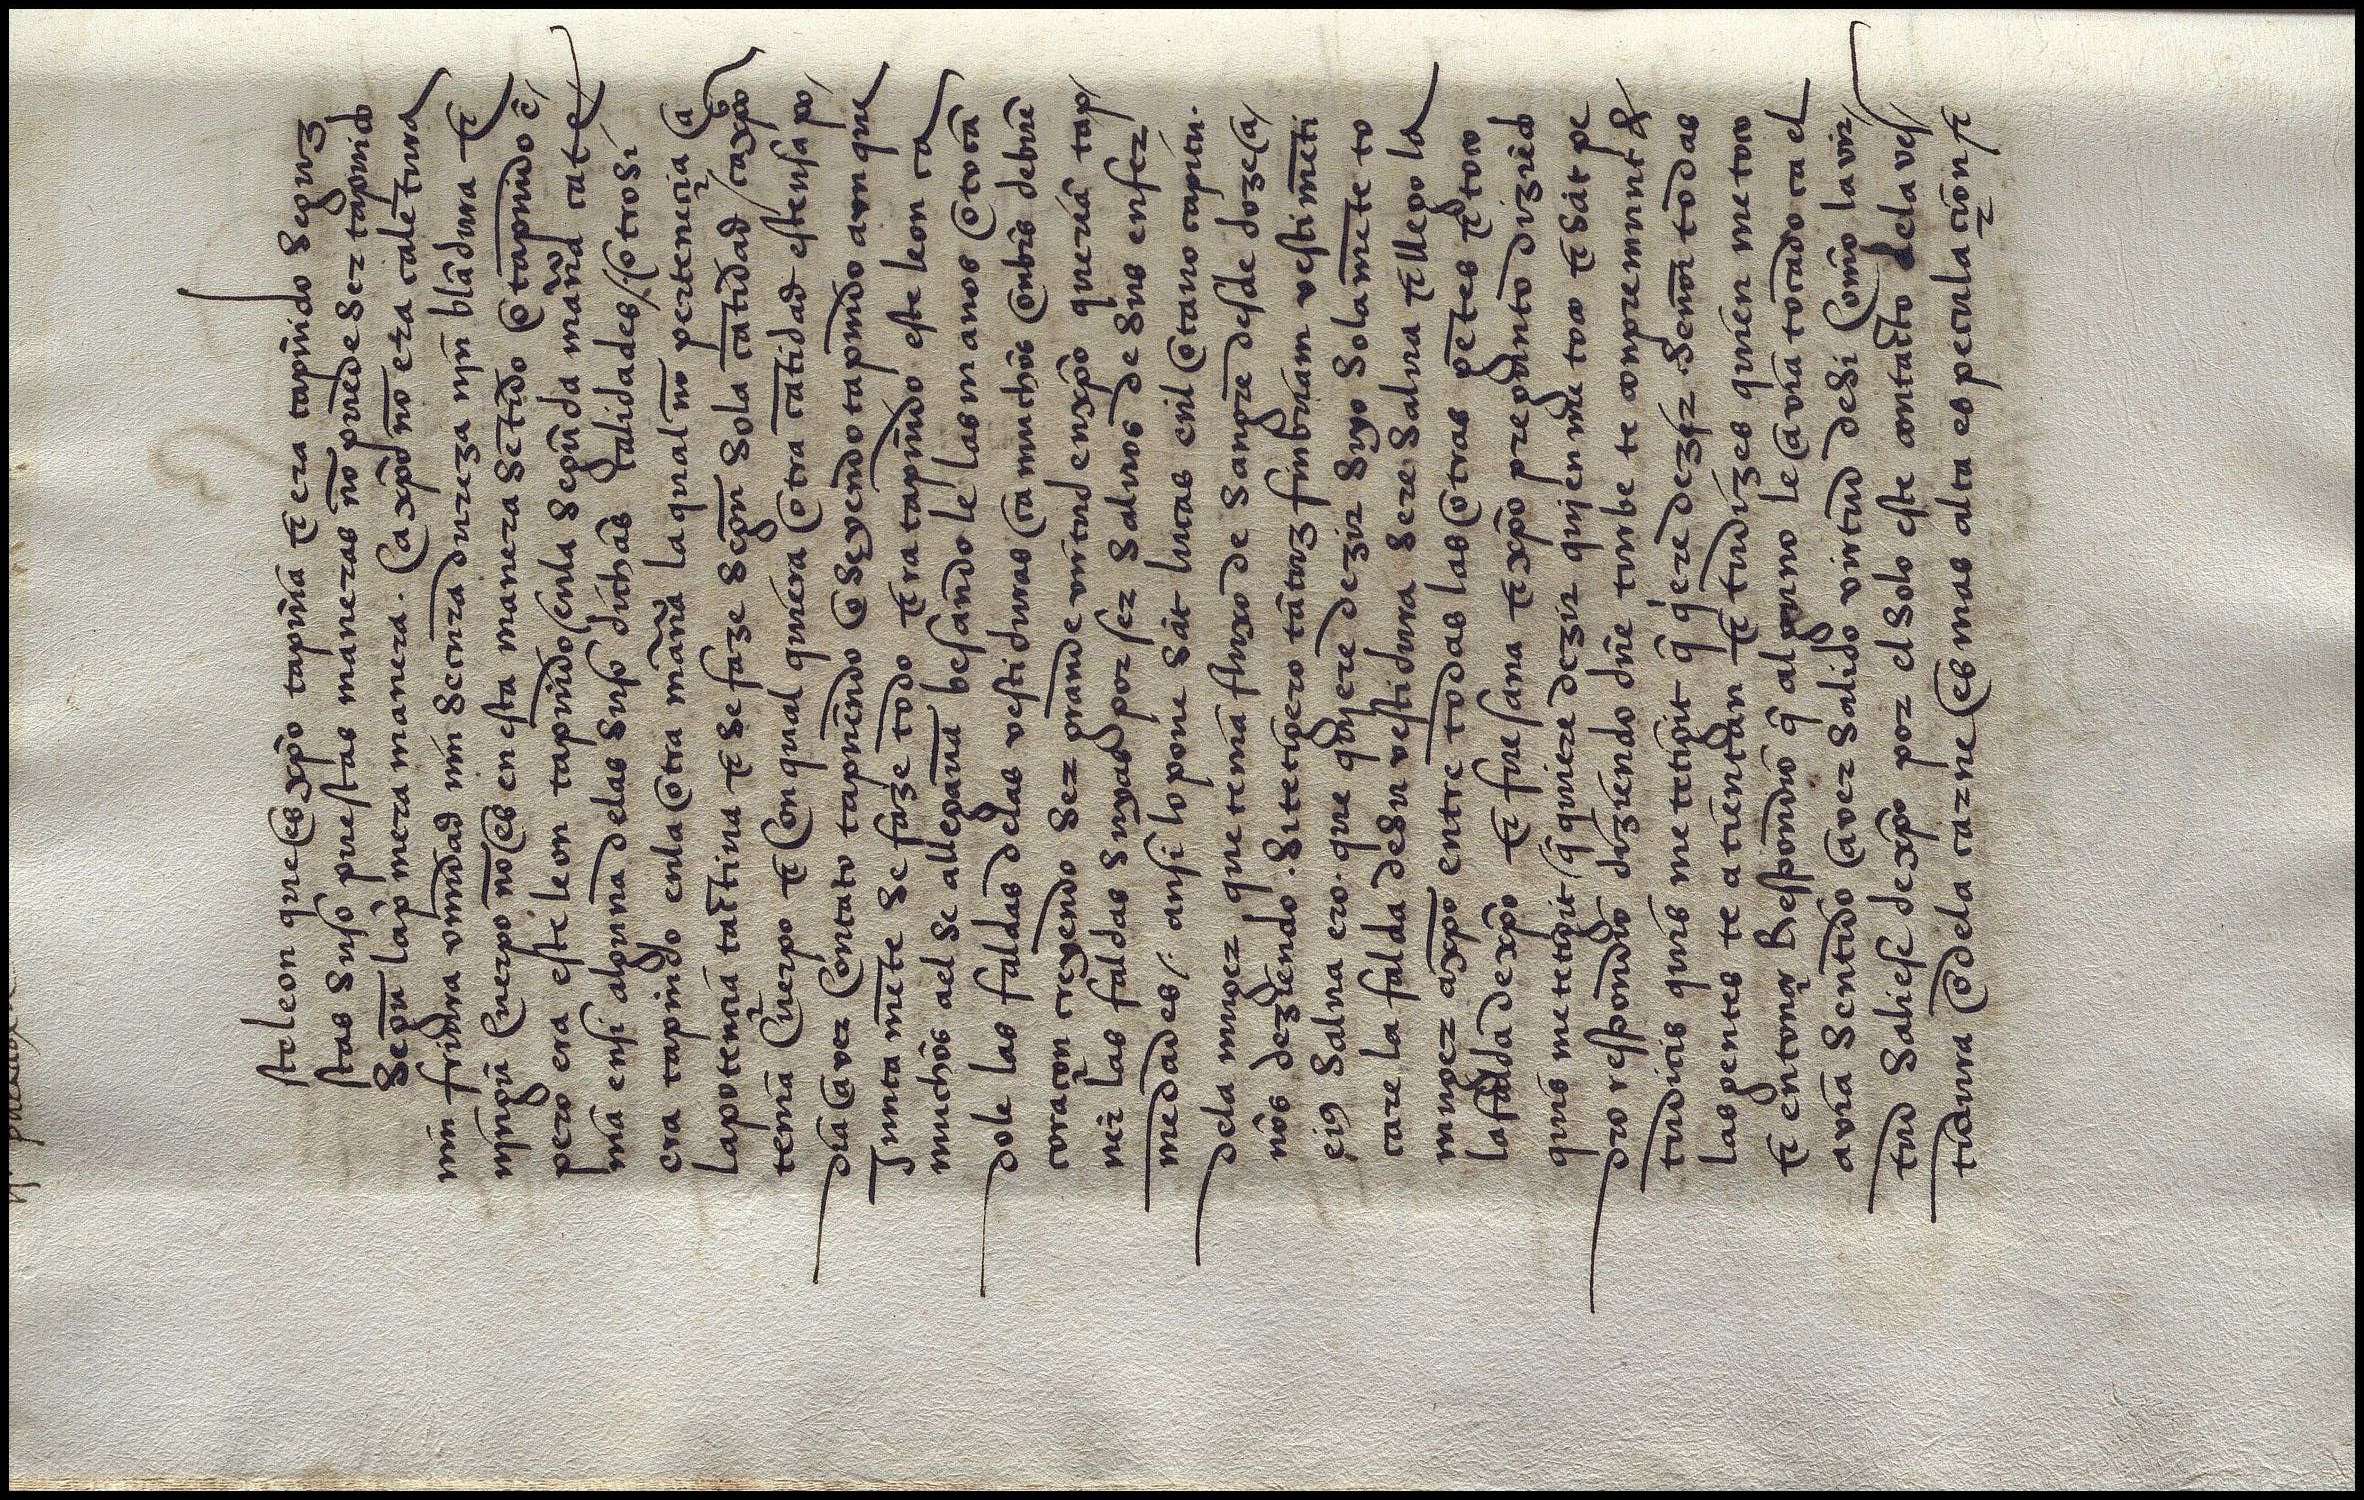 ste leon que es xp̃o tapñia τ era tapñido segun
stas suso puestas maneras nõ puede ser tapnido
Segũ lap̃mera manera. Ca xp̃o nõ era calẽtura
nin fridura vmidad nin secura dureza njn blãdura τ
njngũ cuerpo nõ es en esta manera sẽtido o tapnido ẽ
pero era este leon tapnido enla segũda mañã cate
nia ensi algunna delas suso dichas qalidades / otrosi
era tapnido enla otra mañã la qual nõ pertenecia a
la potencia tactiua τ se faze segũ sola cãtidad / ca xp̃o
tenia cuerpo τ con qual quiera otra cãtidad estensa po
dia aver contato tapnẽdo o seyendo tapnido avn que
Junta mẽte se faze todo τ era tapnido este leon ca
muchos ael se allegauã besando le las manos o tocã
dole las faldas delas vestiduras ca muchos onbrs de buẽ
coraçon creyendo ser grande virtud en xp̃o queriã tap
ner las faldas suyas por ser saluos de sus enfer
medades /. ansi lo pone sãt lucas enl otauo capitu.
dela muger que tenia fluxo de sangre desde doze a
nõs deziendo. Si tetigero tãtuz finbriam vestimẽti
eiꝯ salua ero. que quiere dezir si yo sola mẽte to
care la falda de su vestidura sere salua τ llego la
muger a xp̃o entre todas las otras gẽtes τ toco
la falda de xp̃o τ fue sana τ xp̃o pregũnto diziẽdo
quis me tetigit / q̃ quiere dezir quien me toco τ sãt pe
dro respondio diziendo dñe turbe te conpremunt &
tu dicis quis me tetigit q̃ q̃ere dezir. Señor todas
las gentes te atientan τ tu dizes quien me toco
τ entonçe Respondio q̃ alguno le avia tocado ca el
avia sentido aver salido virtud de si como la vir
tud saliese de xp̃o por el solo este contacto dela ves
tidura o dela carne es mas alta especulacion τ